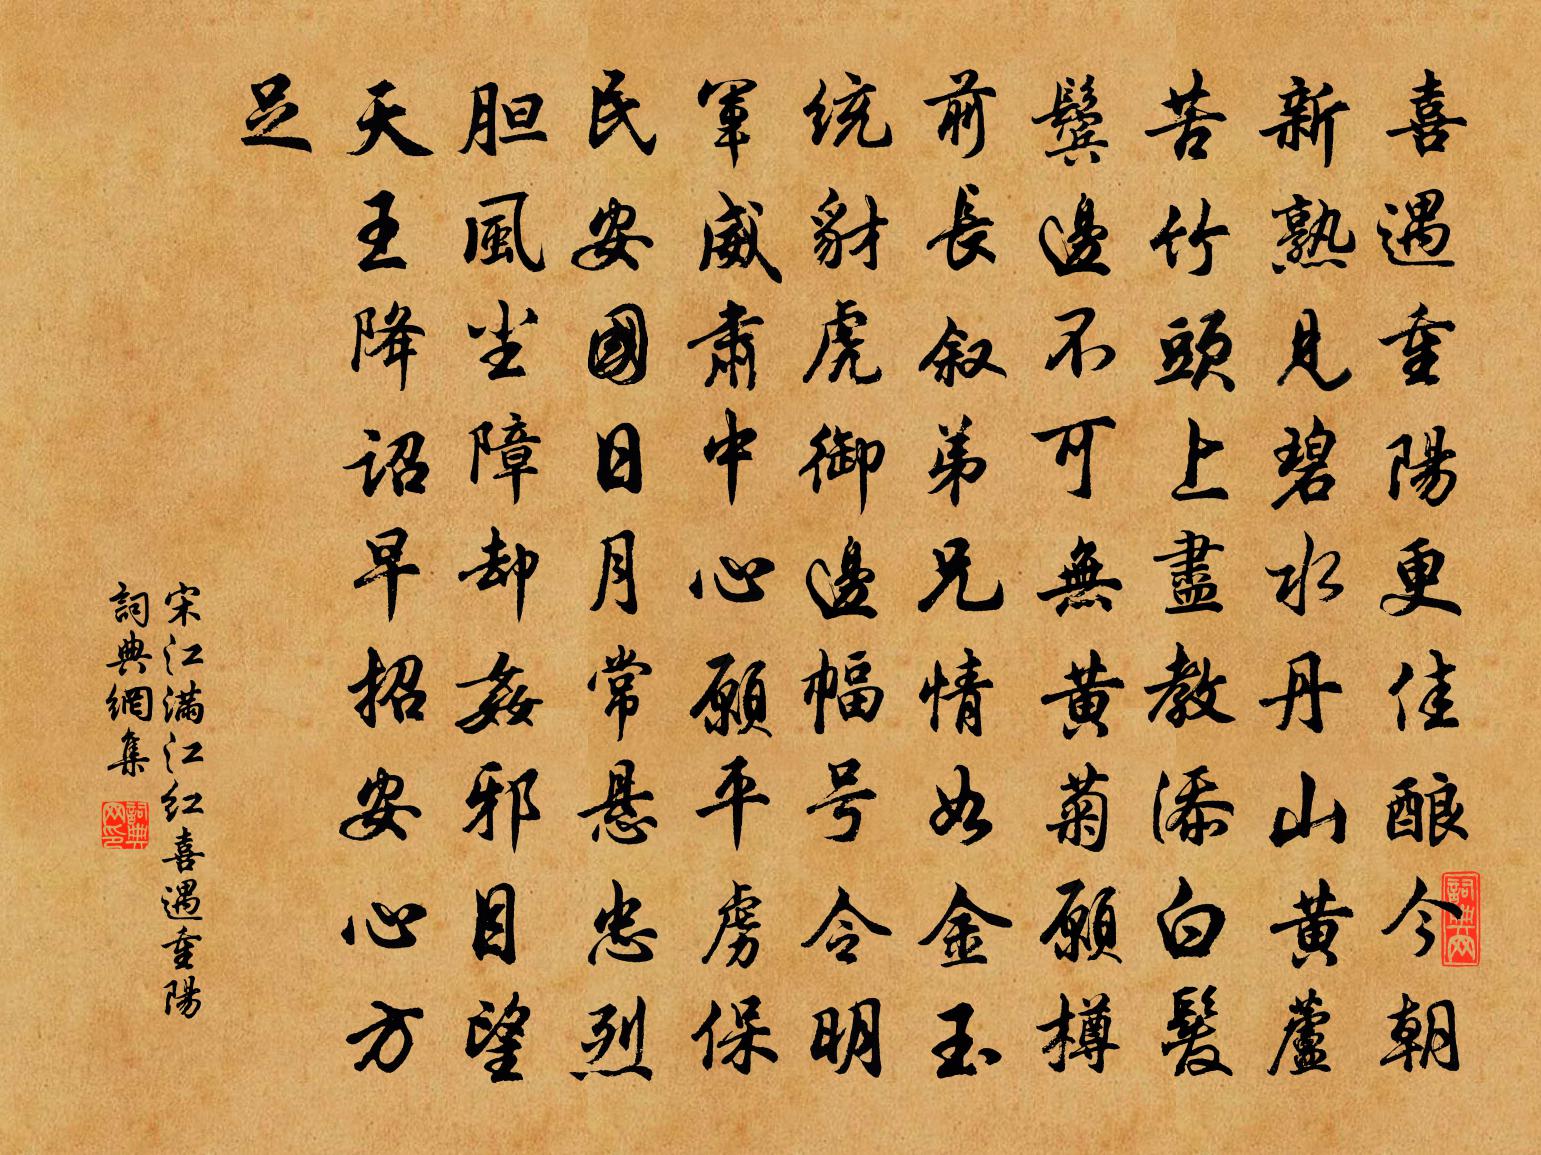 喜遇重陽更佳酿今朝
新熟見碧水丹山黄蘆
苦竹頭上盡教添白髪
鬢邊不可無黄菊願樽
前長叙弟兄情如金玉
统豺虎御邊幅号令明
軍威肃中心願平虏保
民安國日月常悬忠烈
胆風尘障却姦邪目望
天王降诏早招安心方
足
宋江满江红喜遇重陽
詞典網集
詞典網
詞典網印